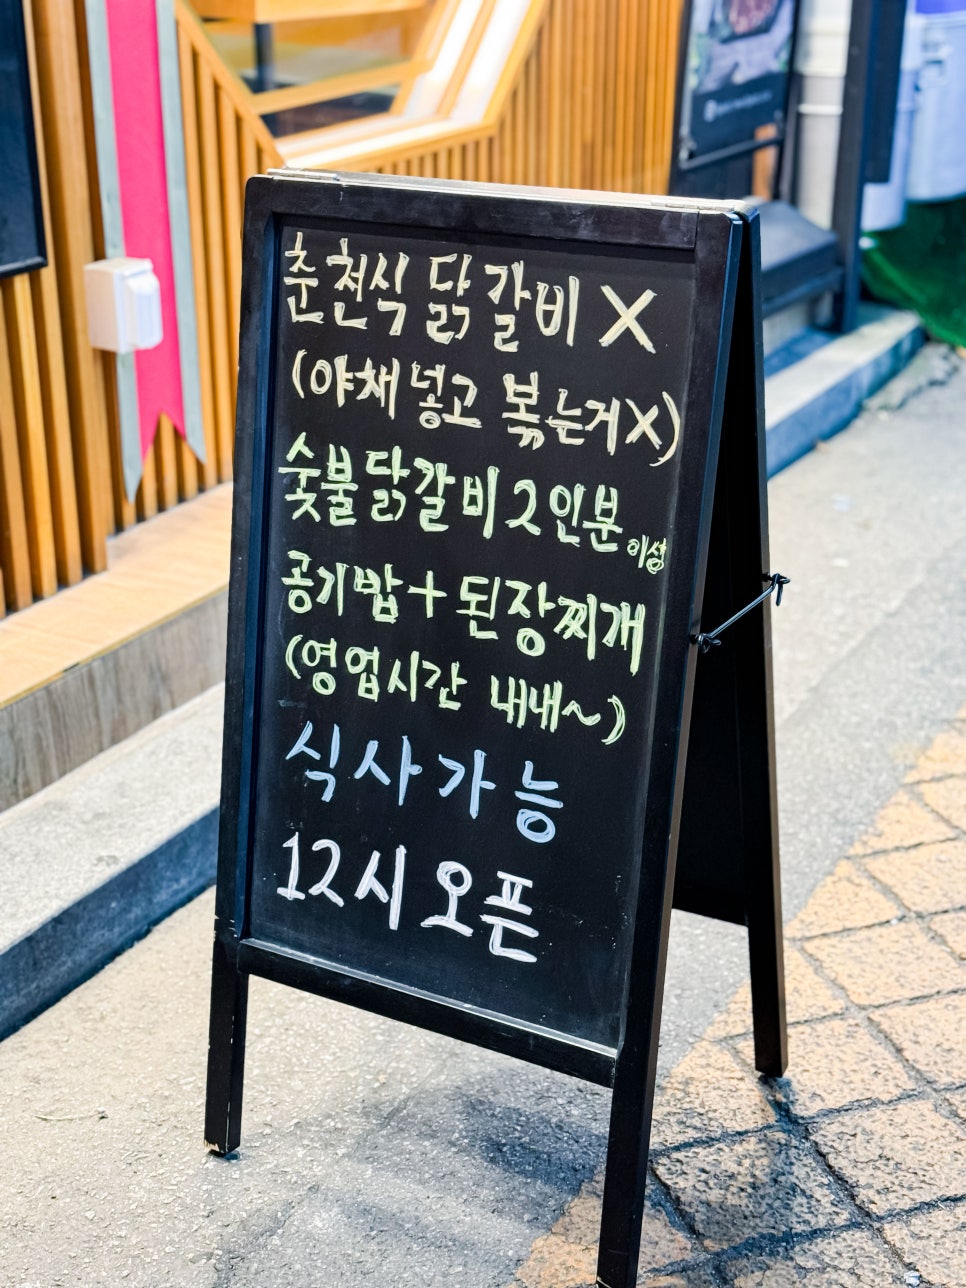 춘천식 닭갈비 X
(야채 넣고 볶는거X)
숯불닭갈비 2인분 이상
공기밥+된장찌개
(영업시간 내내~)
식사가능
12시 오픈